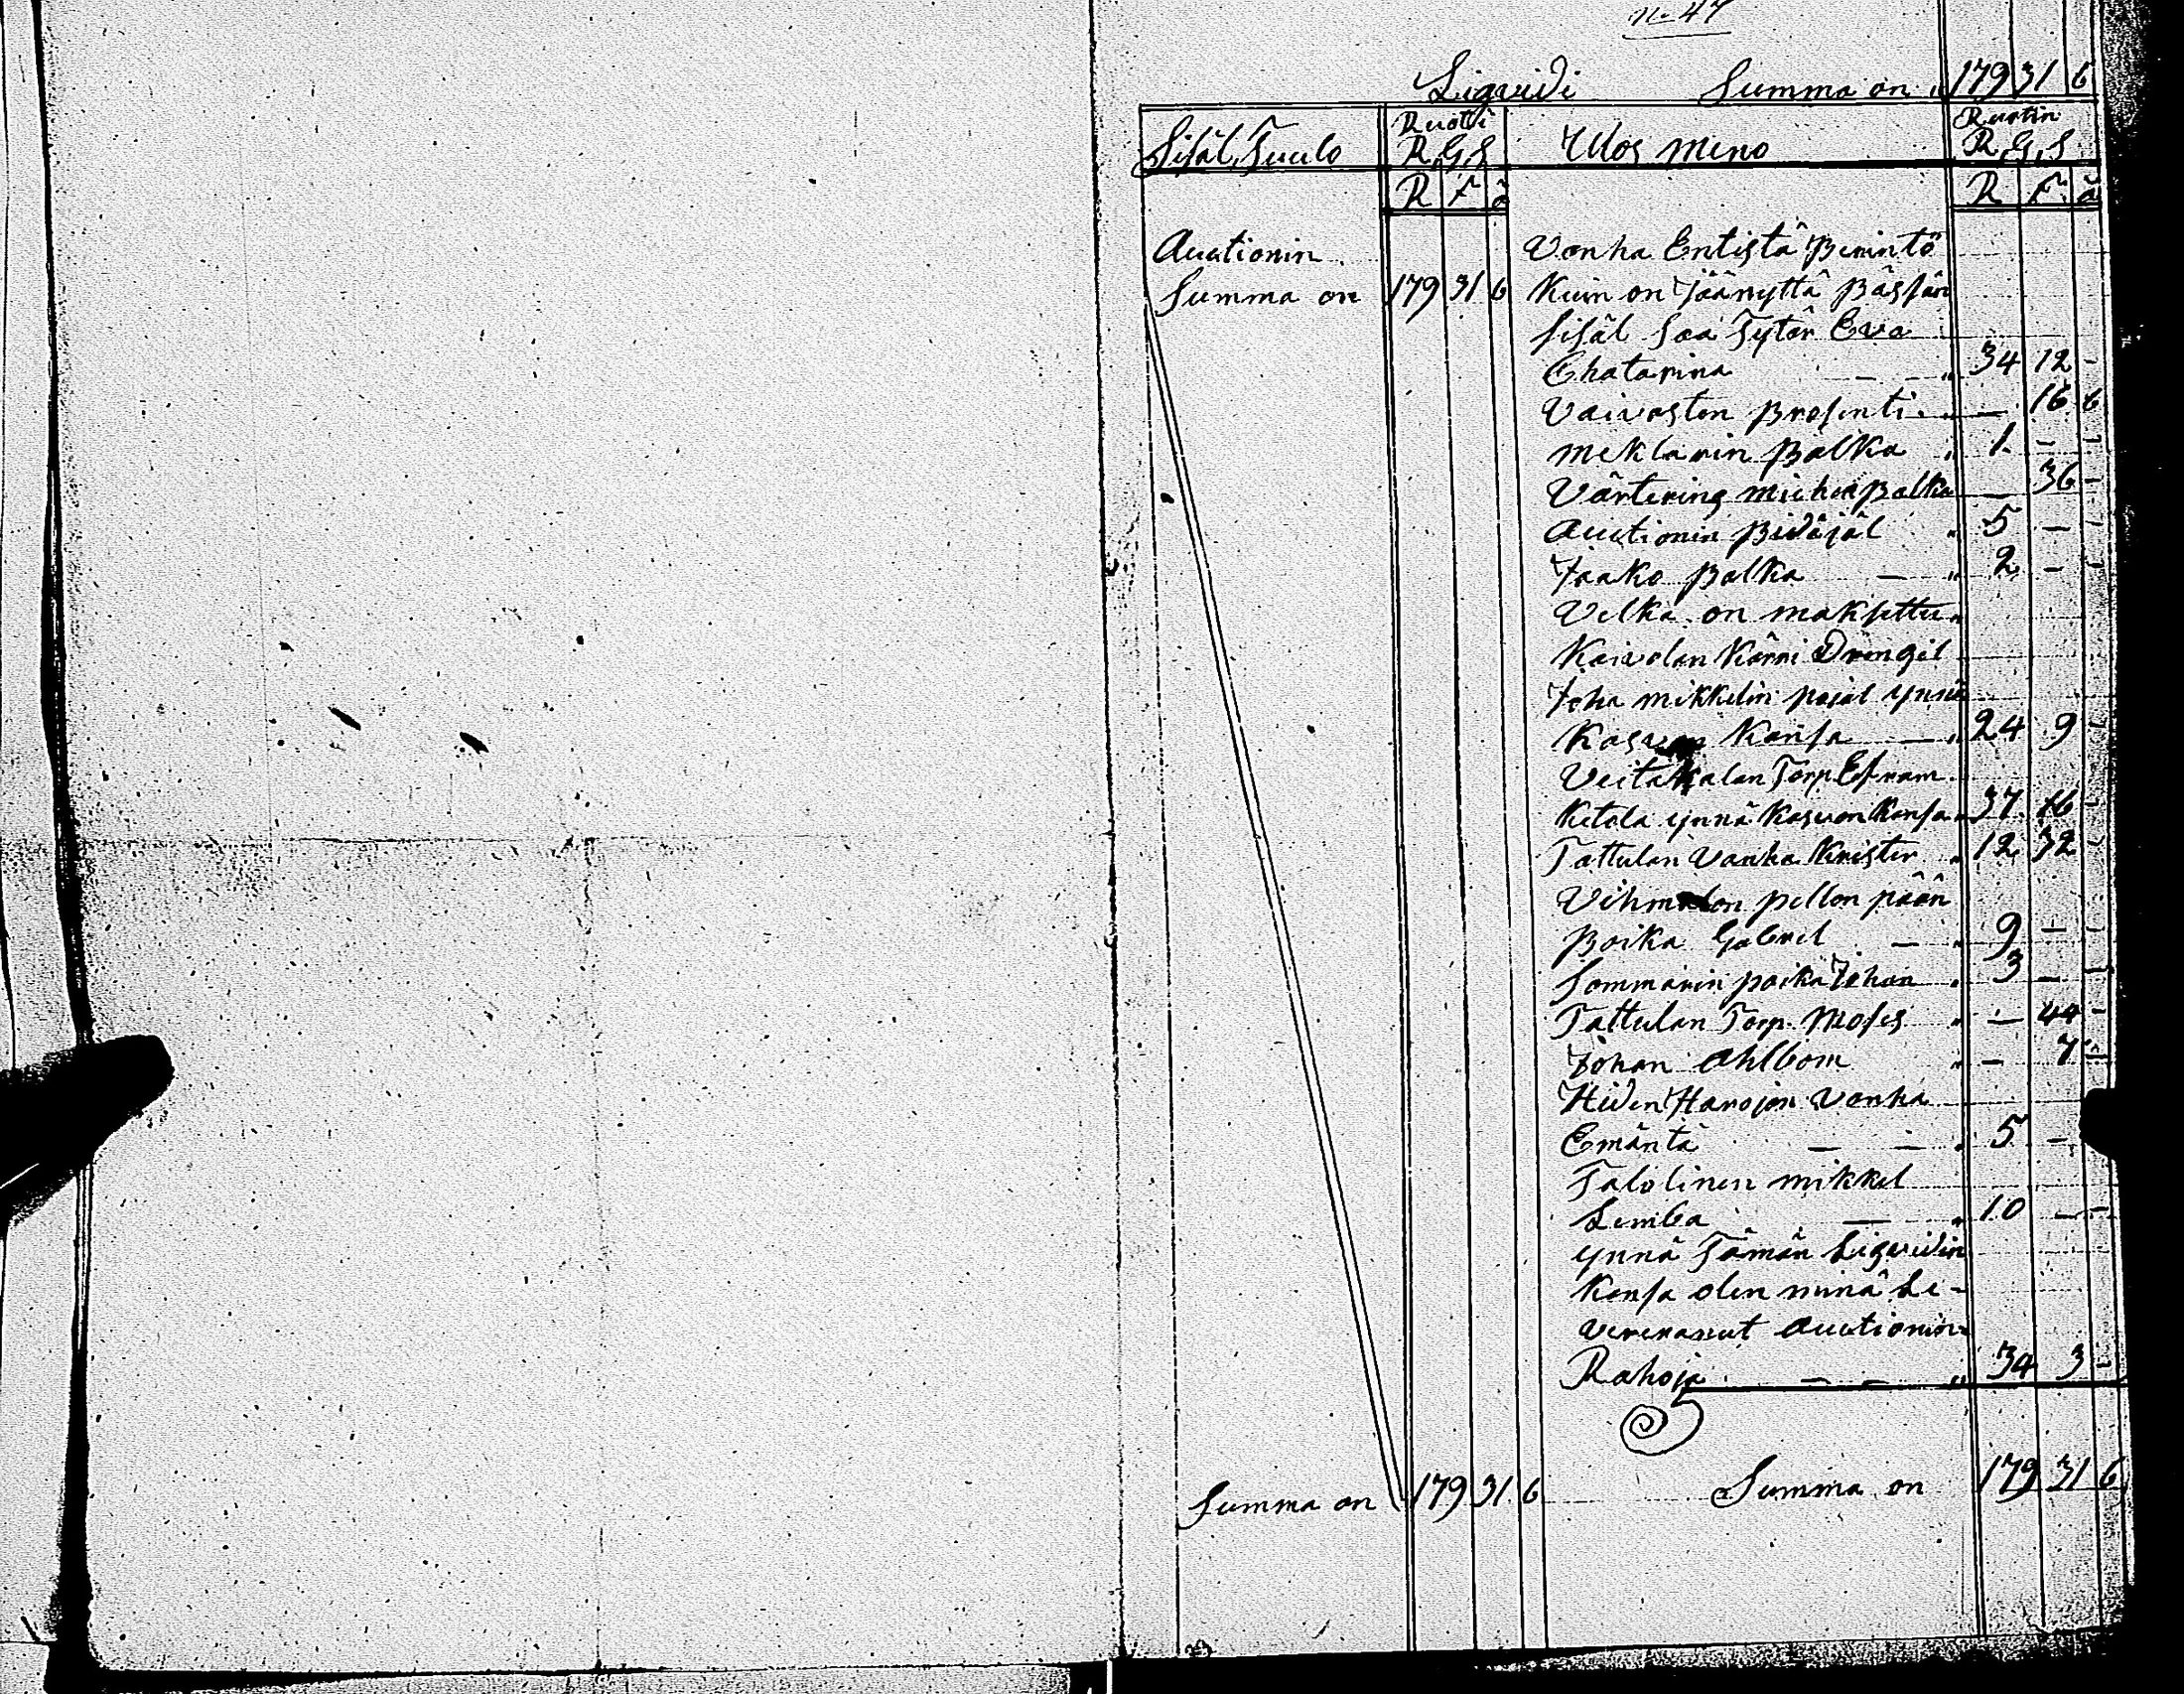 No 47
Liqvidi Summa on „ 179 31 6
Sisäl Tuulo Ruotti R. G. S Ulos meno Ruotin R. G. S
R F ö R F. ö
Auctionin Vanha Entistä Perintö
Summa on 179 31 6 Kuin on Jäänyttä Pässän
sisäl saa Tytär Eva
Chatarina — — „ 34 12 -
Vaivasten Prosenti „ — 16 6
meklarin Palka „ 1 - -
Värtering miehen Palka — 36 -
Auctionin Pidäjäl „ 5 — -
Jaako Palka — „ 2 - -
Velka on maksettu „
Kaivolan Kärri Drengil
Joha mikkelin pojal ynnä
Kasvon Kansa — „ 24 9 -
Torp. Efram
Ketola ynnä Kasvon Kansa „ 37 16 -
Tattulan Vanha Krister „ 12 32 -
pellon pään
Poika Gabriel — „ 9 — -
Sommarin poika Johan „ 3 — -
Tattulan Torp. Moses „ — 44 -
Johan Ahlbom „ — 7 -
Hiden Harojan Vanha
Emäntä — — „ 5 -
Talolinen mikkel
Lemba — „ 10 — -
ynnä Tämän Liqvidin
Kansa olen minä Le-
verenanut Auctionin
Rahoja — — „ 34 3 -
Summa on 179 31 6 Summa on 179 31 6